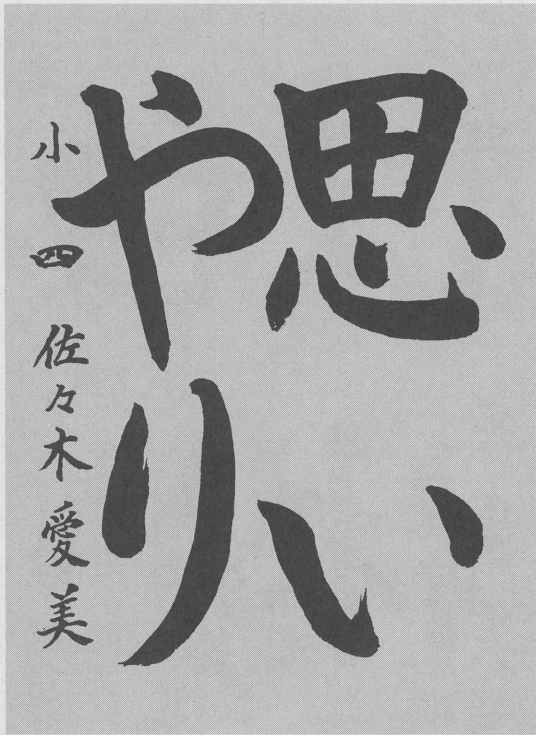 思い
やり
小四 佐々木愛美